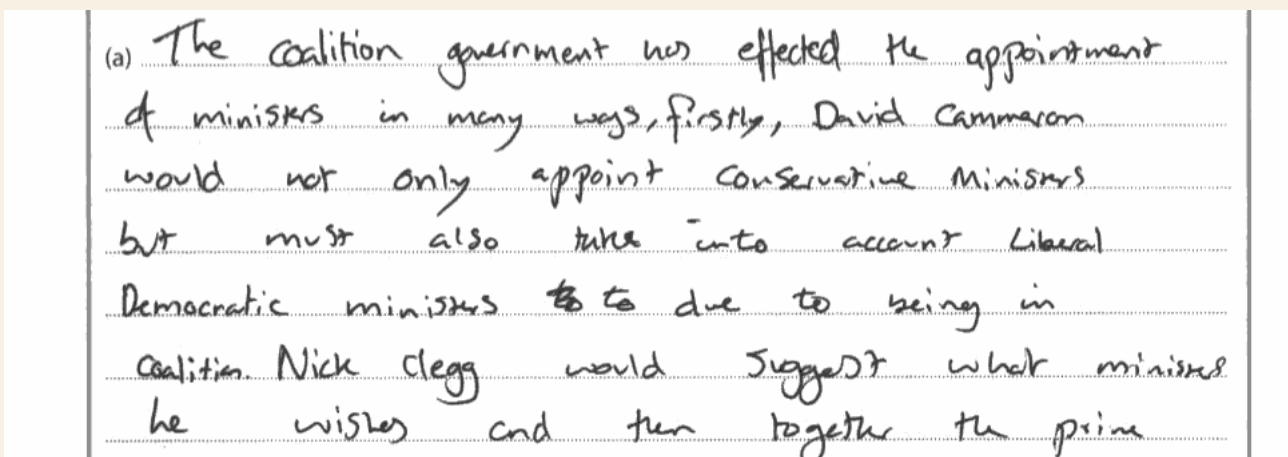 (a) The coalition government has effected the appointment
of ministers in many ways, firstly, David Cammeron
would not only appoint Conservative Ministers
but must also take into account Liberal
Democratic ministers to due to being in
Coalition. Nick Clegg would suggest what ministers
he wishes and then together the prime